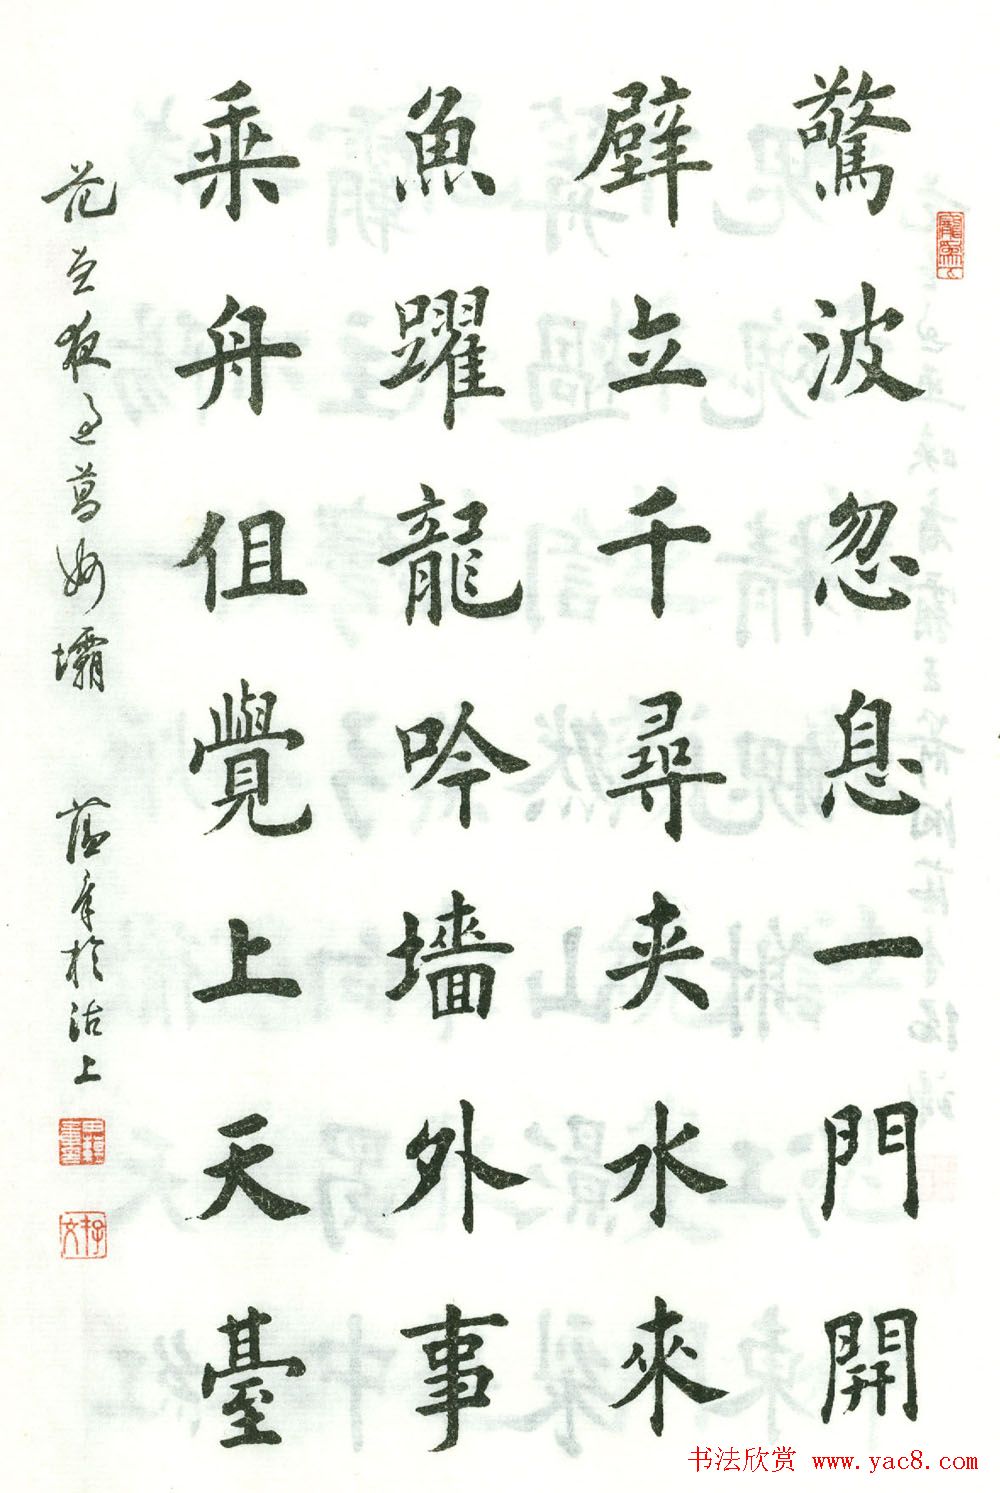 驚波忽息一門開
壁立千尋夾水來
魚躍龍吟墻外事
乘舟但覺上天臺
夜過葛州壩 於沽上
书法欣赏 www.yac8.com